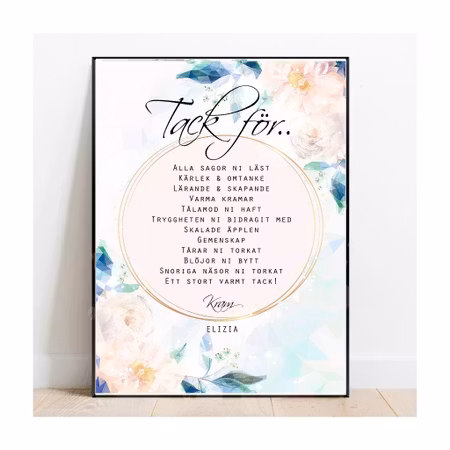 Tack för..
Alla sagor ni läst
Kärlek & omtanke
Lärande & skapande
Varma kramar
Tålamod ni haft
Tryggheten ni bidragit med
Skalade äpplen
Gemenskap
Tårar ni torkat
Blöjor ni bytt
Snoriga näsor ni torkat
Ett stort varmt tack!
Kram
ELIZIA